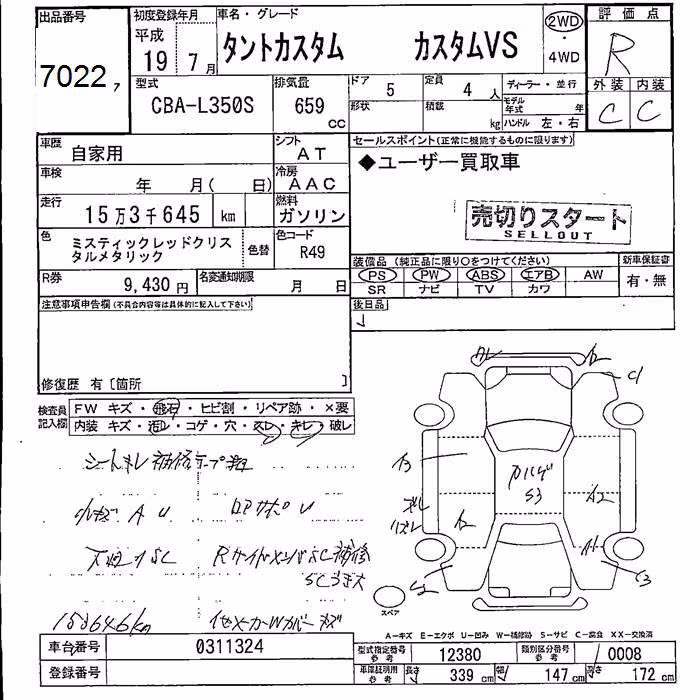 出品番号
7022
初度登録年月
平成
19年 7月
車名・グレード
タントカスタム カスタムVS
2WD
・
4WD
評価点
R
外装 内装
C C
型式
CBA-L350S
排気量
659
CC
ドア 5
定員 4 人
ディーラー・並行
形状
積載 kg
モデル年式 年
ハンドル 左・右
車歴
自家用
シフト
AT
車検 年 月( 日)
冷房
AAC
走行
15万3千645 km
燃料
ガソリン
色
ミスティックレッドクリス
タルメタリック
色替
色コード
R49
R券
9,430円
名変通知期限
月 日
セールスポイント(正常に機能するものに限ります)
◆ユーザー買取車
売切りスタート
SELLOUT
装備品 (純正品に限り○をつけてください)
新車保証書
PS PW ABS エアB AW
SR ナビ TV カワ
有・無
後日品
注意事項申告欄(不具合内容等は具体的に記入して下さい)
修復歴 有〔箇所 〕
検査員
記入欄
FW キズ・飛石・ヒビ割・リペア跡・×要
内装 キズ・汚レ・コゲ・穴・スレ・キレ・破レ
シートキレ補修テープ
小キズ A U
下廻りSC
153646km
A2
A2
A1
S3
スペア
A-キズ E-エクボ U-凹み W-補修跡 S-サビ C-腐食 XX-交換済
車台番号 0311324
登録番号
型式指定番号
参考
12380
類別区分番号
参考
0008
車庫証明用
参考
長さ 339 cm
幅 147 cm
高さ 172 cm